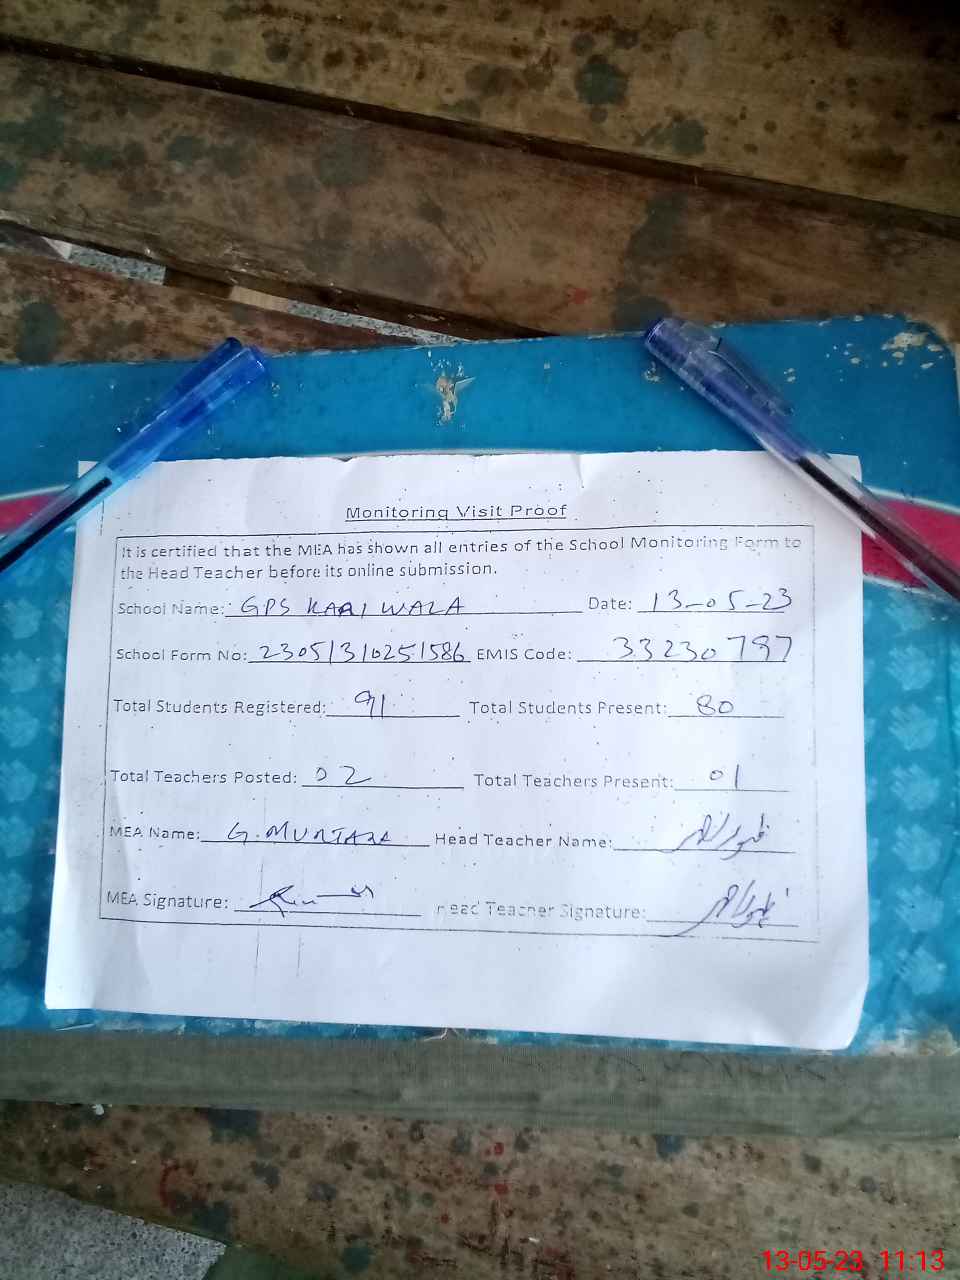 Monitoring Visit Proof
It is certified that the MEA has shown all entries of the School Monitoring Form to
the Head Teacher before its online submission.
School Name: GPS KARI WALA Date: 13-05-23
School Form No: 23051310251586 EMIS Code: 33230797
Total Students Registered: 91 Total Students Present: 80
Total Teachers Posted: 02 Total Teachers Present: 01
MEA Name: G. MURTAZA Head Teacher Name:
MEA Signature: Head Teacher Signature:
13-05-23 11:13